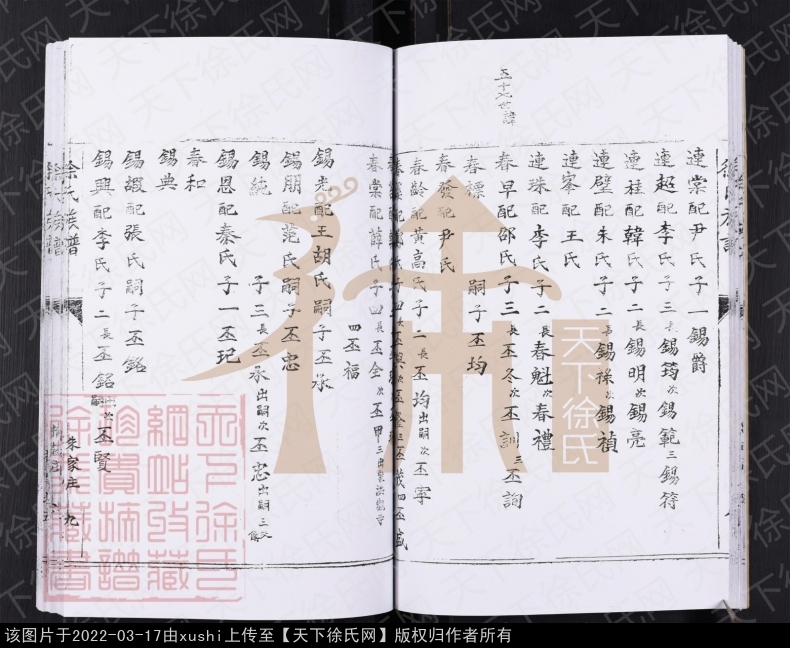 五十七世諱
連棠配尹氏子一錫爵
連超配李氏子三長錫筠次錫範三錫符
連桂配韓氏子二長錫明次錫亮
連壁配朱氏子二長錫祿次錫禎
連峯配王氏
連珠配李氏子二長春魁次春禮
春早配邵氏子三長丕冬次丕訓三丕詢
春標 嗣子丕均
春發配尹氏
春齡配黃高氏子二長丕均出嗣次丕寧
春棠配薛氏子四長丕全次丕甲三出
四丕福
錫光配王胡氏嗣子丕承
錫朋配范氏嗣子丕忠
錫純 子三長丕承出嗣次丕忠出嗣三
錫恩配秦氏子一丕玘
春和
錫典
錫嘏配張氏嗣子丕銘
錫興配李氏子二長丕銘出嗣次丕賢
徐氏族譜
朱家庄 九
天下徐氏
天下徐氏網站收藏珍貴摘譜
天下徐氏网
该图片于2022-03-17由xushi上传至【天下徐氏网】版权归作者所有